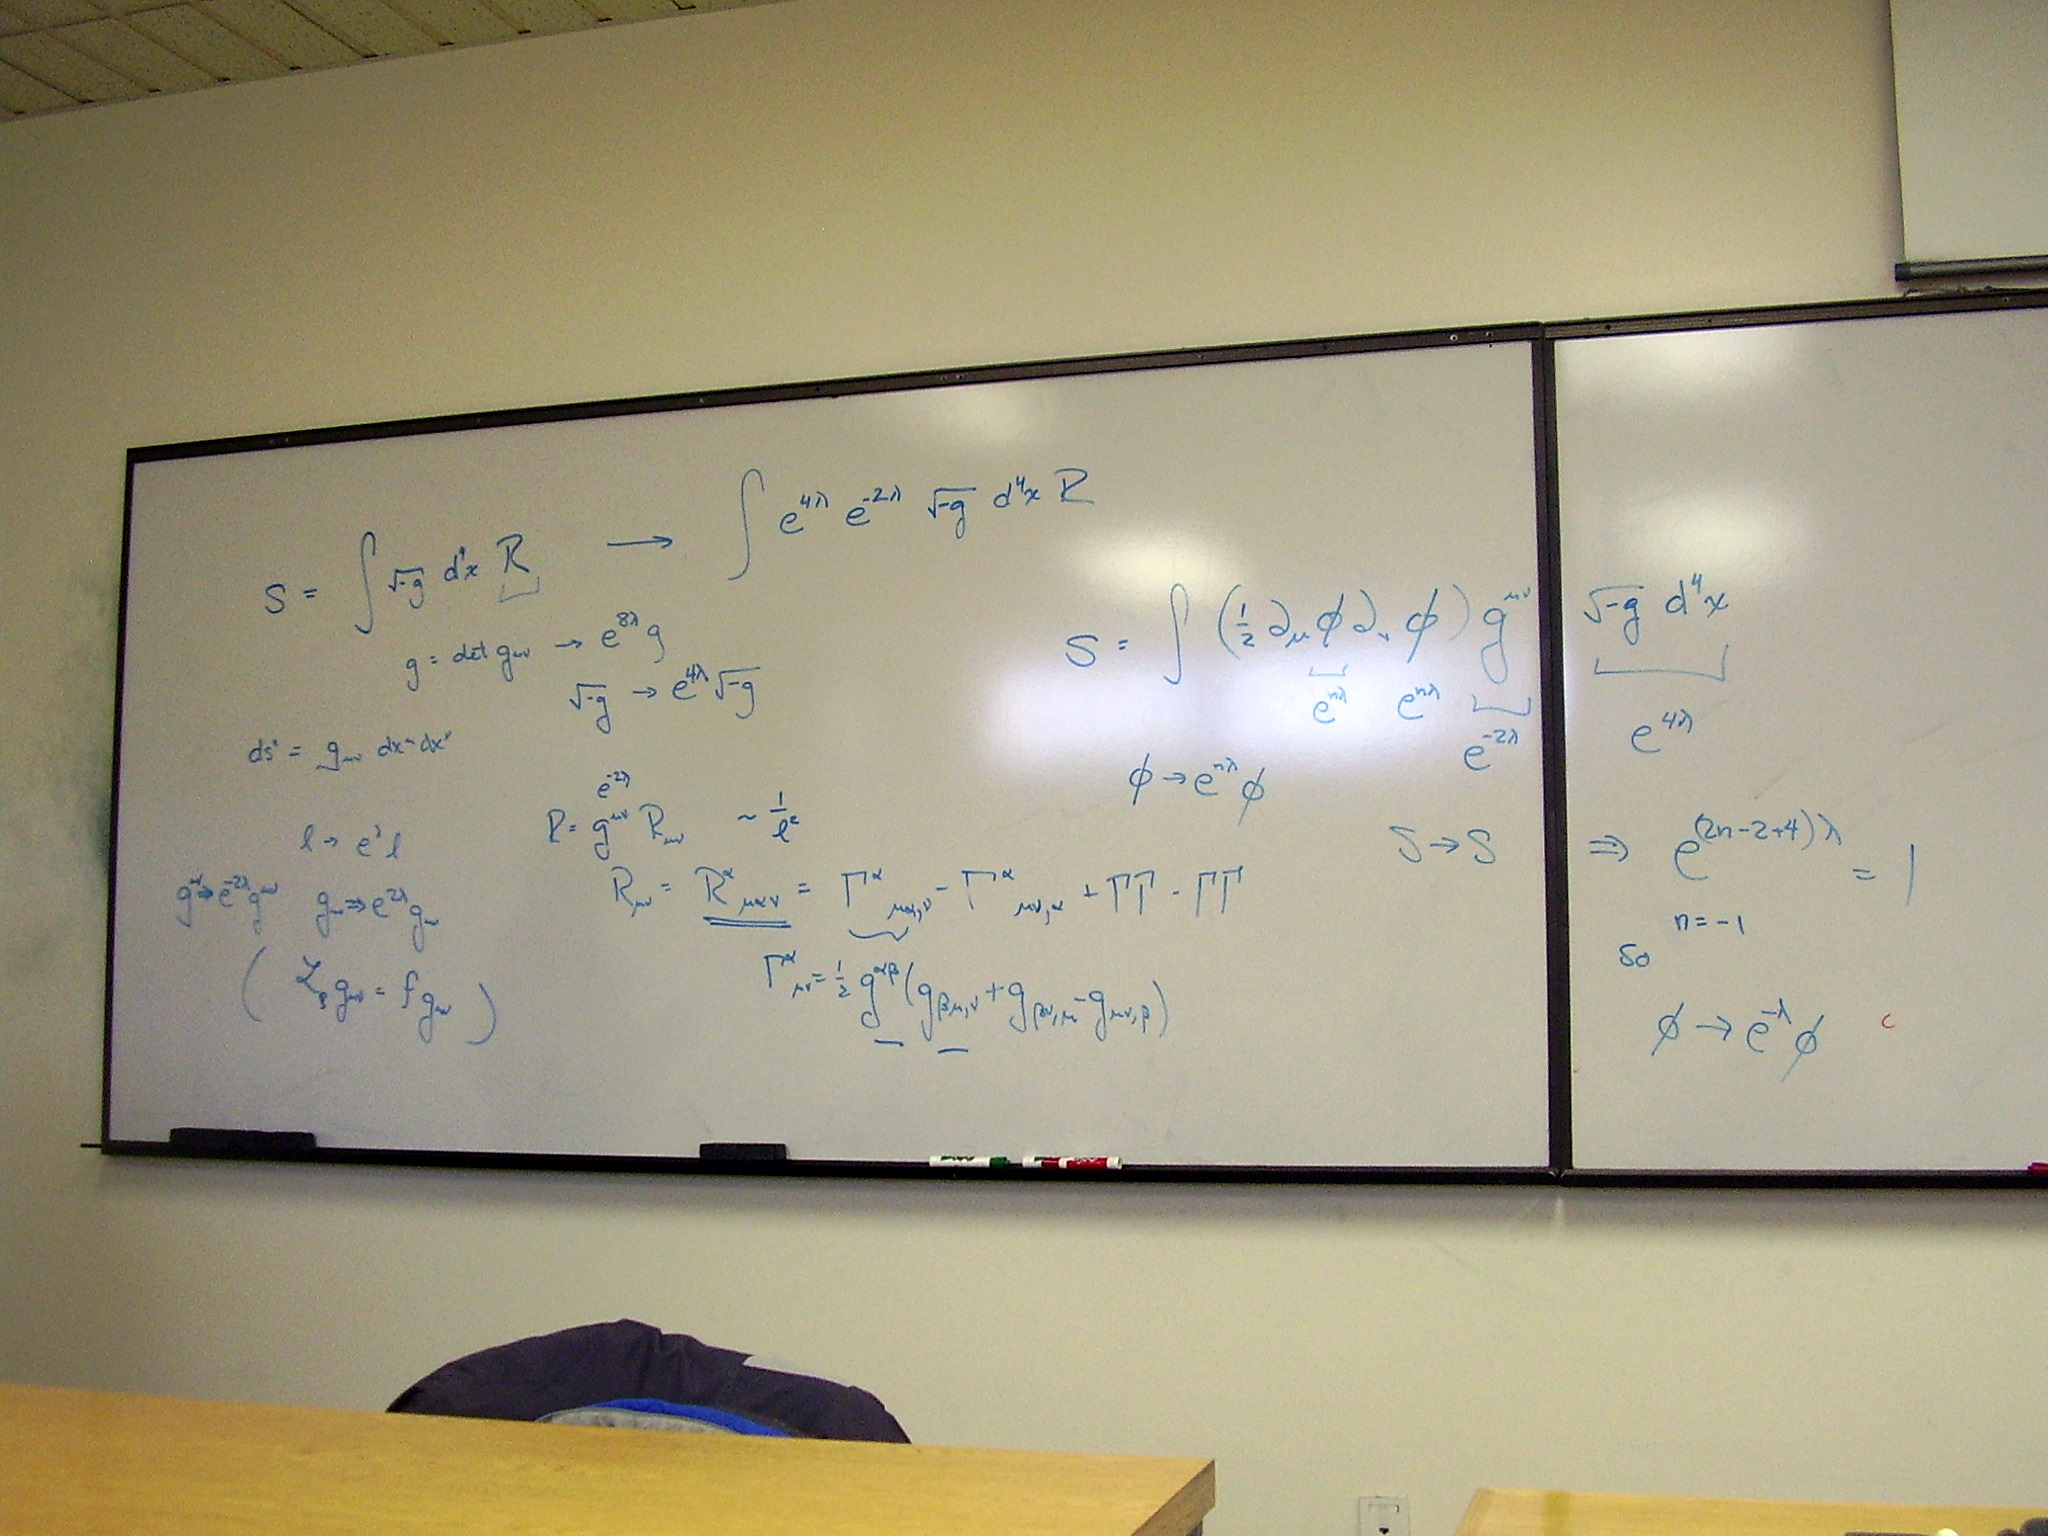 S = ∫ √-g d⁴x R → ∫ e^{4λ} e^{-2λ} √-g d⁴x R
g = det g_{μν} → e^{8λ} g
√-g → e^{4λ} √-g
ds² = g_{μν} dx^μ dx^ν
l → e^λ l
g^{μν} → e^{-2λ} g^{μν} g_{μν} ⇒ e^{2λ} g_{μν}
( ℒ_ξ g_{μν} = f g_{μν} )
e^{-2λ}
R = g^{μν} R_{μν} ~ 1/l²
R_{μν} = R^α_{μαν} = Γ^α_{μα,ν} - Γ^α_{μν,α} + ΓΓ - ΓΓ
Γ^α_{μν} = ½ g^{αβ} (g_{βμ,ν} + g_{βν,μ} - g_{μν,β})
S = ∫ (½ ∂_μ ϕ ∂_ν ϕ) g^{μν} √-g d⁴x
e^{nλ} e^{nλ} e^{-2λ} e^{4λ}
ϕ → e^{nλ} ϕ
S → S ⇒ e^{(2n-2+4)λ} = 1
n = -1
so
ϕ → e^{-λ} ϕ